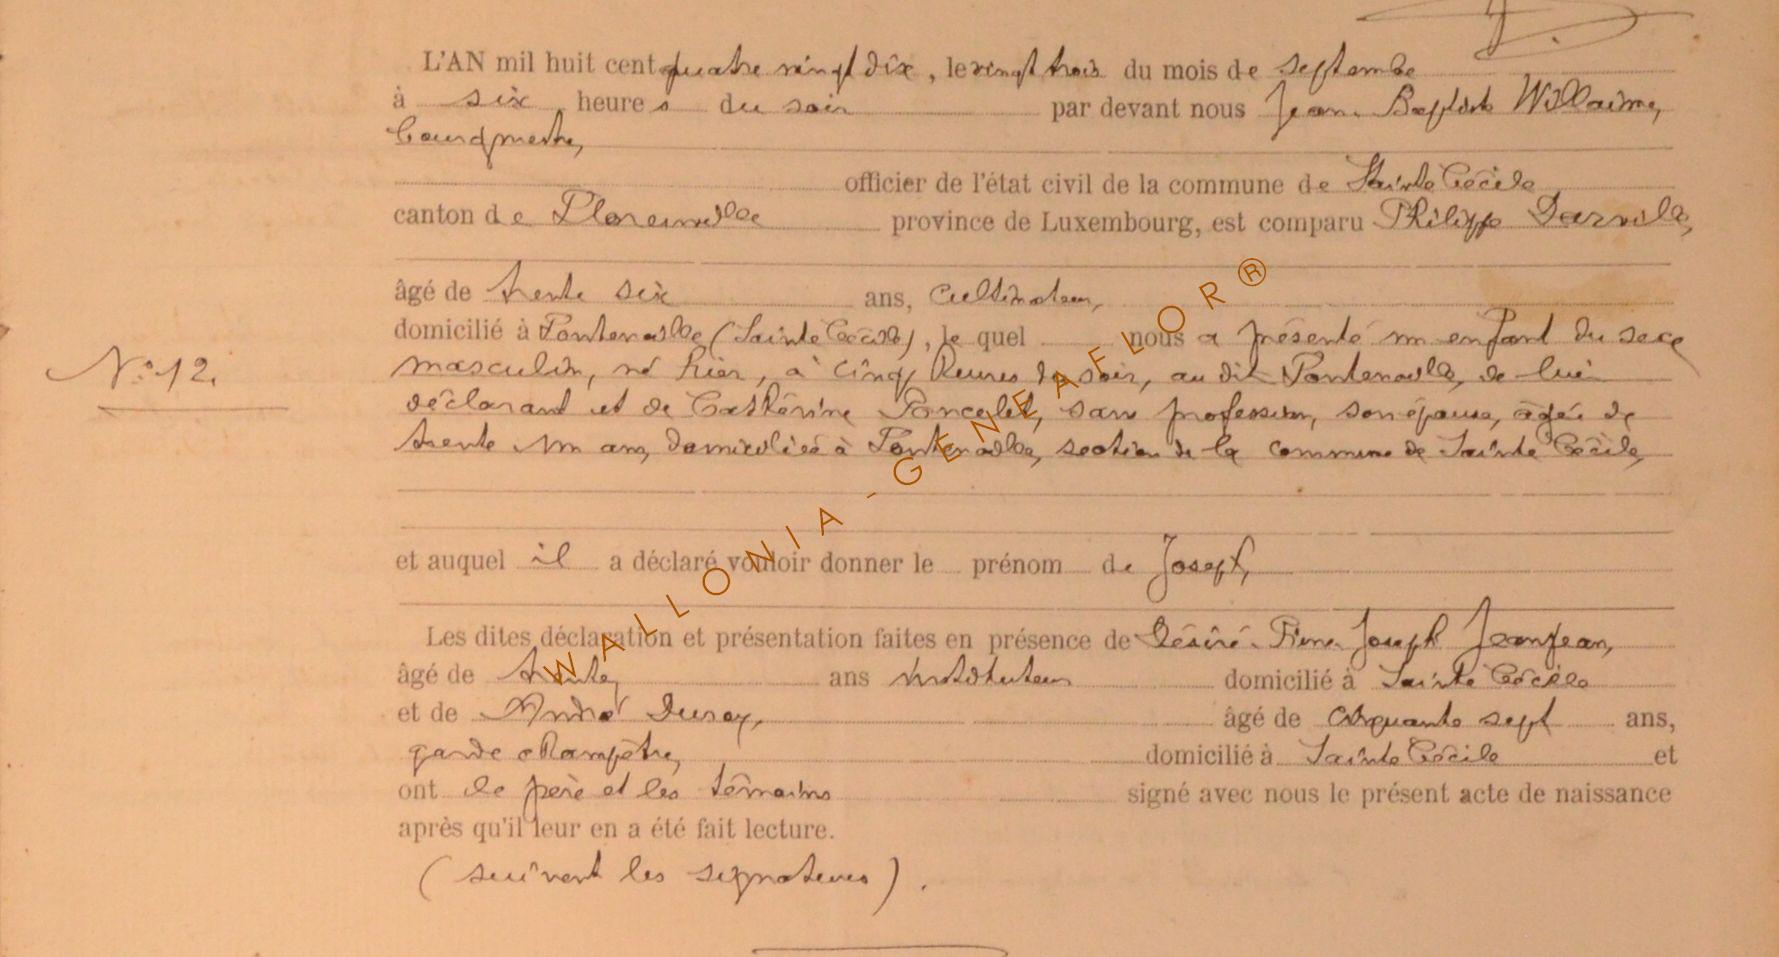 L'AN mil huit cent quatre vingt dix, le vingt trois du mois de septembre
à six heures du soir par devant nous Jean-Baptiste Willaime,
bourgmestre,
officier de l'état civil de la commune de Sainte Cécile
canton de Florenville province de Luxembourg, est comparu Philippe Darville,
âgé de trente six ans, cultivateur,
domicilié à Fontenoille (Sainte Cécile), lequel nous a présenté un enfant du sexe
N° 12.
masculin, né hier, à cinq heures du soir, au dit Fontenoille, de lui
déclarant et de Catherine Poncelet, sans profession, son épouse, âgée de
trente un ans, domiciliée à Fontenoille, section de la commune de Sainte Cécile,
et auquel il a déclaré vouloir donner le prénom de Joseph,
Les dites déclaration et présentation faites en présence de Désiré-Pierre-Joseph Jeanjean,
âgé de trente, ans instituteur domicilié à Sainte Cécile
et de André Duroy, âgé de cinquante sept ans,
garde champêtre, domicilié à Sainte Cécile et
ont le père et les témoins signé avec nous le présent acte de naissance
après qu'il leur en a été fait lecture.
(suivent les signatures).
WALLONIA-GENEAFLOR®